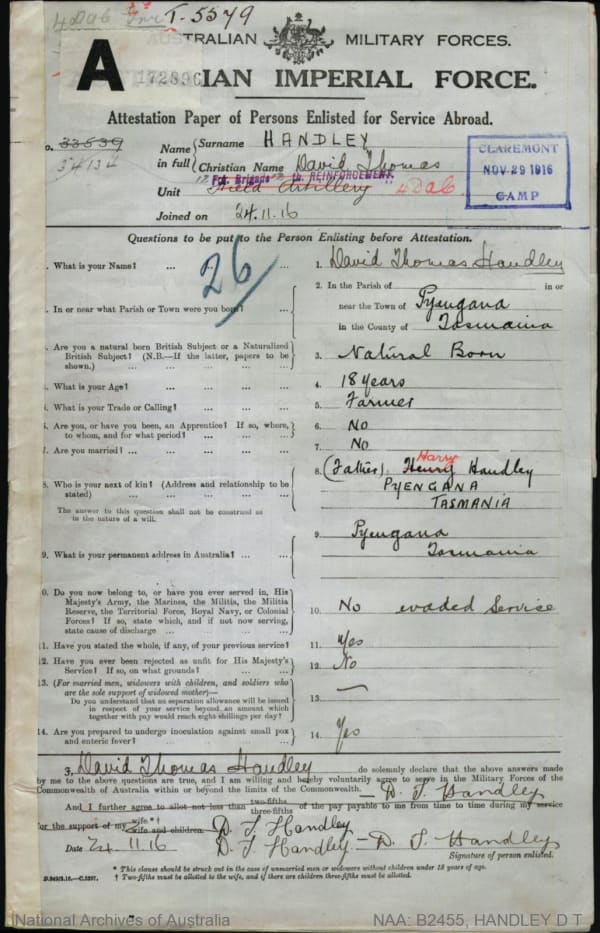 T-5579
AUSTRALIAN MILITARY FORCES.
A 172896
IAN IMPERIAL FORCE.
Attestation Paper of Persons Enlisted for Service Abroad.
o. 33539
34134
Name in full { Surname HANDLEY
Christian Name David Thomas
Unit Field Artillery REINFORCEMENT. 4 DAC
CLAREMONT
NOV 29 1916
CAMP
Joined on 24.11.16
Questions to be put to the Person Enlisting before Attestation.
26
. What is your Name? ... ... ... 1. David Thomas Handley
. In or near what Parish or Town were you born? ... 2. In the Parish of in or
near the Town of Pyengana
in the County of Tasmania
. Are you a natural born British Subject or a Naturalized
British Subject? (N.B.—If the latter, papers to be
shown.) ... ... 3. Natural Born
. What is your Age? ... ... ... 4. 18 years
. What is your Trade or Calling? ... ... ... 5. Farmer
. Are you, or have you been, an Apprentice? If so, where,
to whom, and for what period? ... ... 6. No
. Are you married? ... ... ... ... 7. No
8. Who is your next of kin? (Address and relationship to be
stated) ... ... ... 8. (Father) Henry Harry Handley
PYENGANA
TASMANIA
The answer to this question shall not be construed as
in the nature of a will.
9. What is your permanent address in Australia? ... ... 9. Pyengana
Tasmania
0. Do you now belong to, or have you ever served in, His
Majesty's Army, the Marines, the Militia, the Militia
Reserve, the Territorial Force, Royal Navy, or Colonial
Forces? If so, state which, and if not now serving,
state cause of discharge ... ... 10. No evaded Service
11. Have you stated the whole, if any, of your previous service? 11. Yes
12. Have you ever been rejected as unfit for His Majesty's
Service? If so, on what grounds? ... 12. No
13. (For married men, widowers with children, and soldiers who
are the sole support of widowed mother)—
Do you understand that no separation allowance will be issued
in respect of your service beyond an amount which
together with pay would reach eight shillings per day? 13. —
14. Are you prepared to undergo inoculation against small pox
and enteric fever? ... ... ... 14. Yes
3, David Thomas Handley do solemnly declare that the above answers made
by me to the above questions are true, and I am willing and hereby voluntarily agree to serve in the Military Forces of the
Commonwealth of Australia within or beyond the limits of the Commonwealth. D. T. Handley
And I further agree to allot not less than two-fifths three-fifths of the pay payable to me from time to time during my service
for the support of my wife.*† wife and children D. T. Handley
Date 24.11.16 D. T. Handley — D. T. Handley
Signature of person enlisted.
* This clause should be struck out in the case of unmarried men or widowers without children under 18 years of age.
† Two-fifths must be allotted to the wife, and if there are children three-fifths must be allotted.
National Archives of Australia NAA: B2455, HANDLEY D T